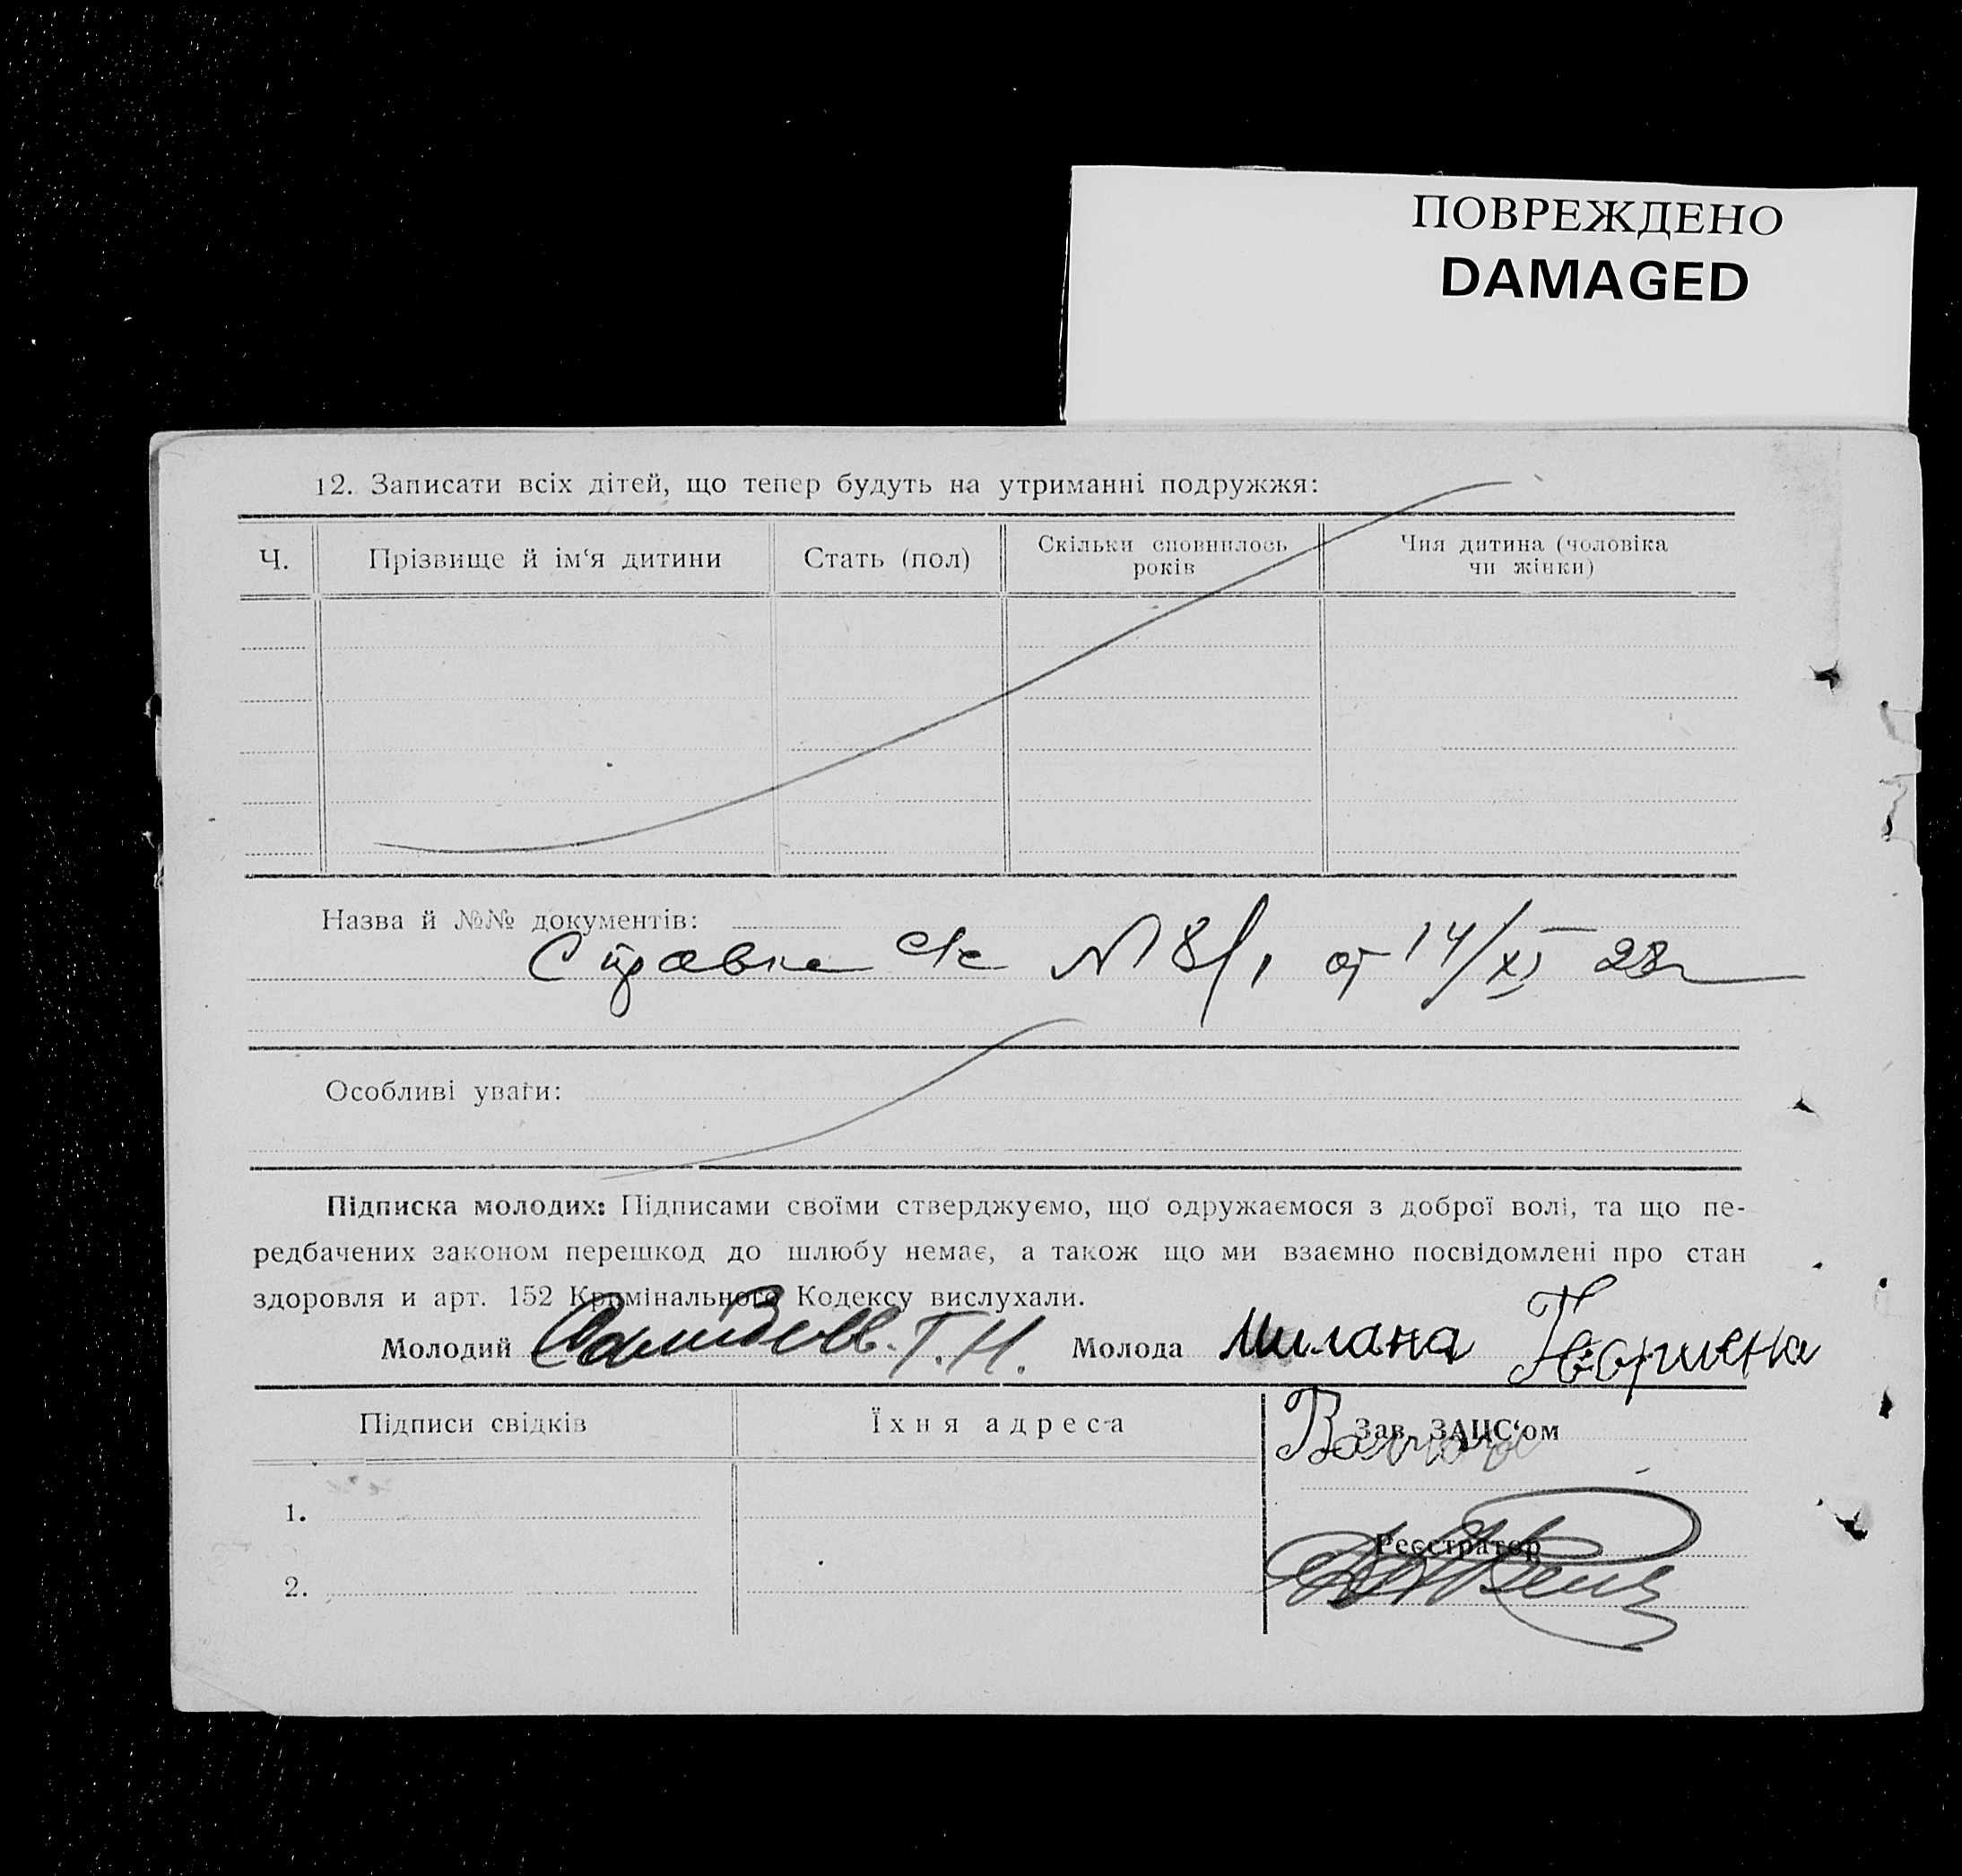 ПОВРЕЖДЕНО
DAMAGED
12. Записати всіх дітей, що тепер будуть на утриманні подружжя:
Ч.
Прізвище й ім‘я дитини
Стать (пол)
Скільки сповнилось
років
Чия дитина (чоловіка
чи жінки)
Назва й №№ документів:
Справка с/с № 8/1 от 14/XI 28 г
Особливі уваги:
Підписка молодих: Підписами своїми стверджуємо, що одружаємося з доброї волі, та що пе-
редбачених законом перешкод до шлюбу немає, а також що ми взаємно посвідомлені про стан
здоровля и арт. 152 Кримінального Кодексу вислухали.
Молодий Т. Н. Молода Милана
Підписи свідків
Їхня адреса
Зав. ЗАЦС‘ом
1.
Реєстратор
2.